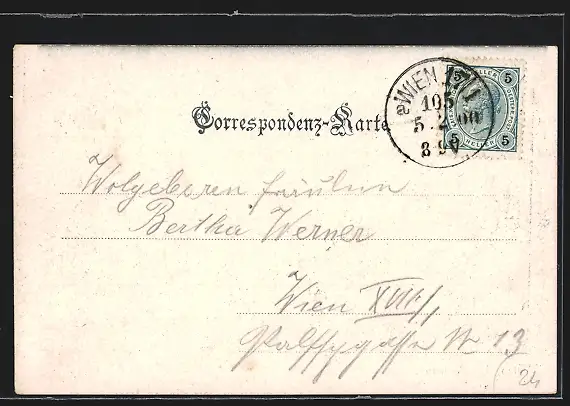 Correspondenz-Karte
WIEN
105
5.2.00
8 9V
5 HELLER 5
5 HELLER 5
Wolgeberen fräulen
Bertha Werner
Wien XVIII/1
Palffygasse Nr 13
24